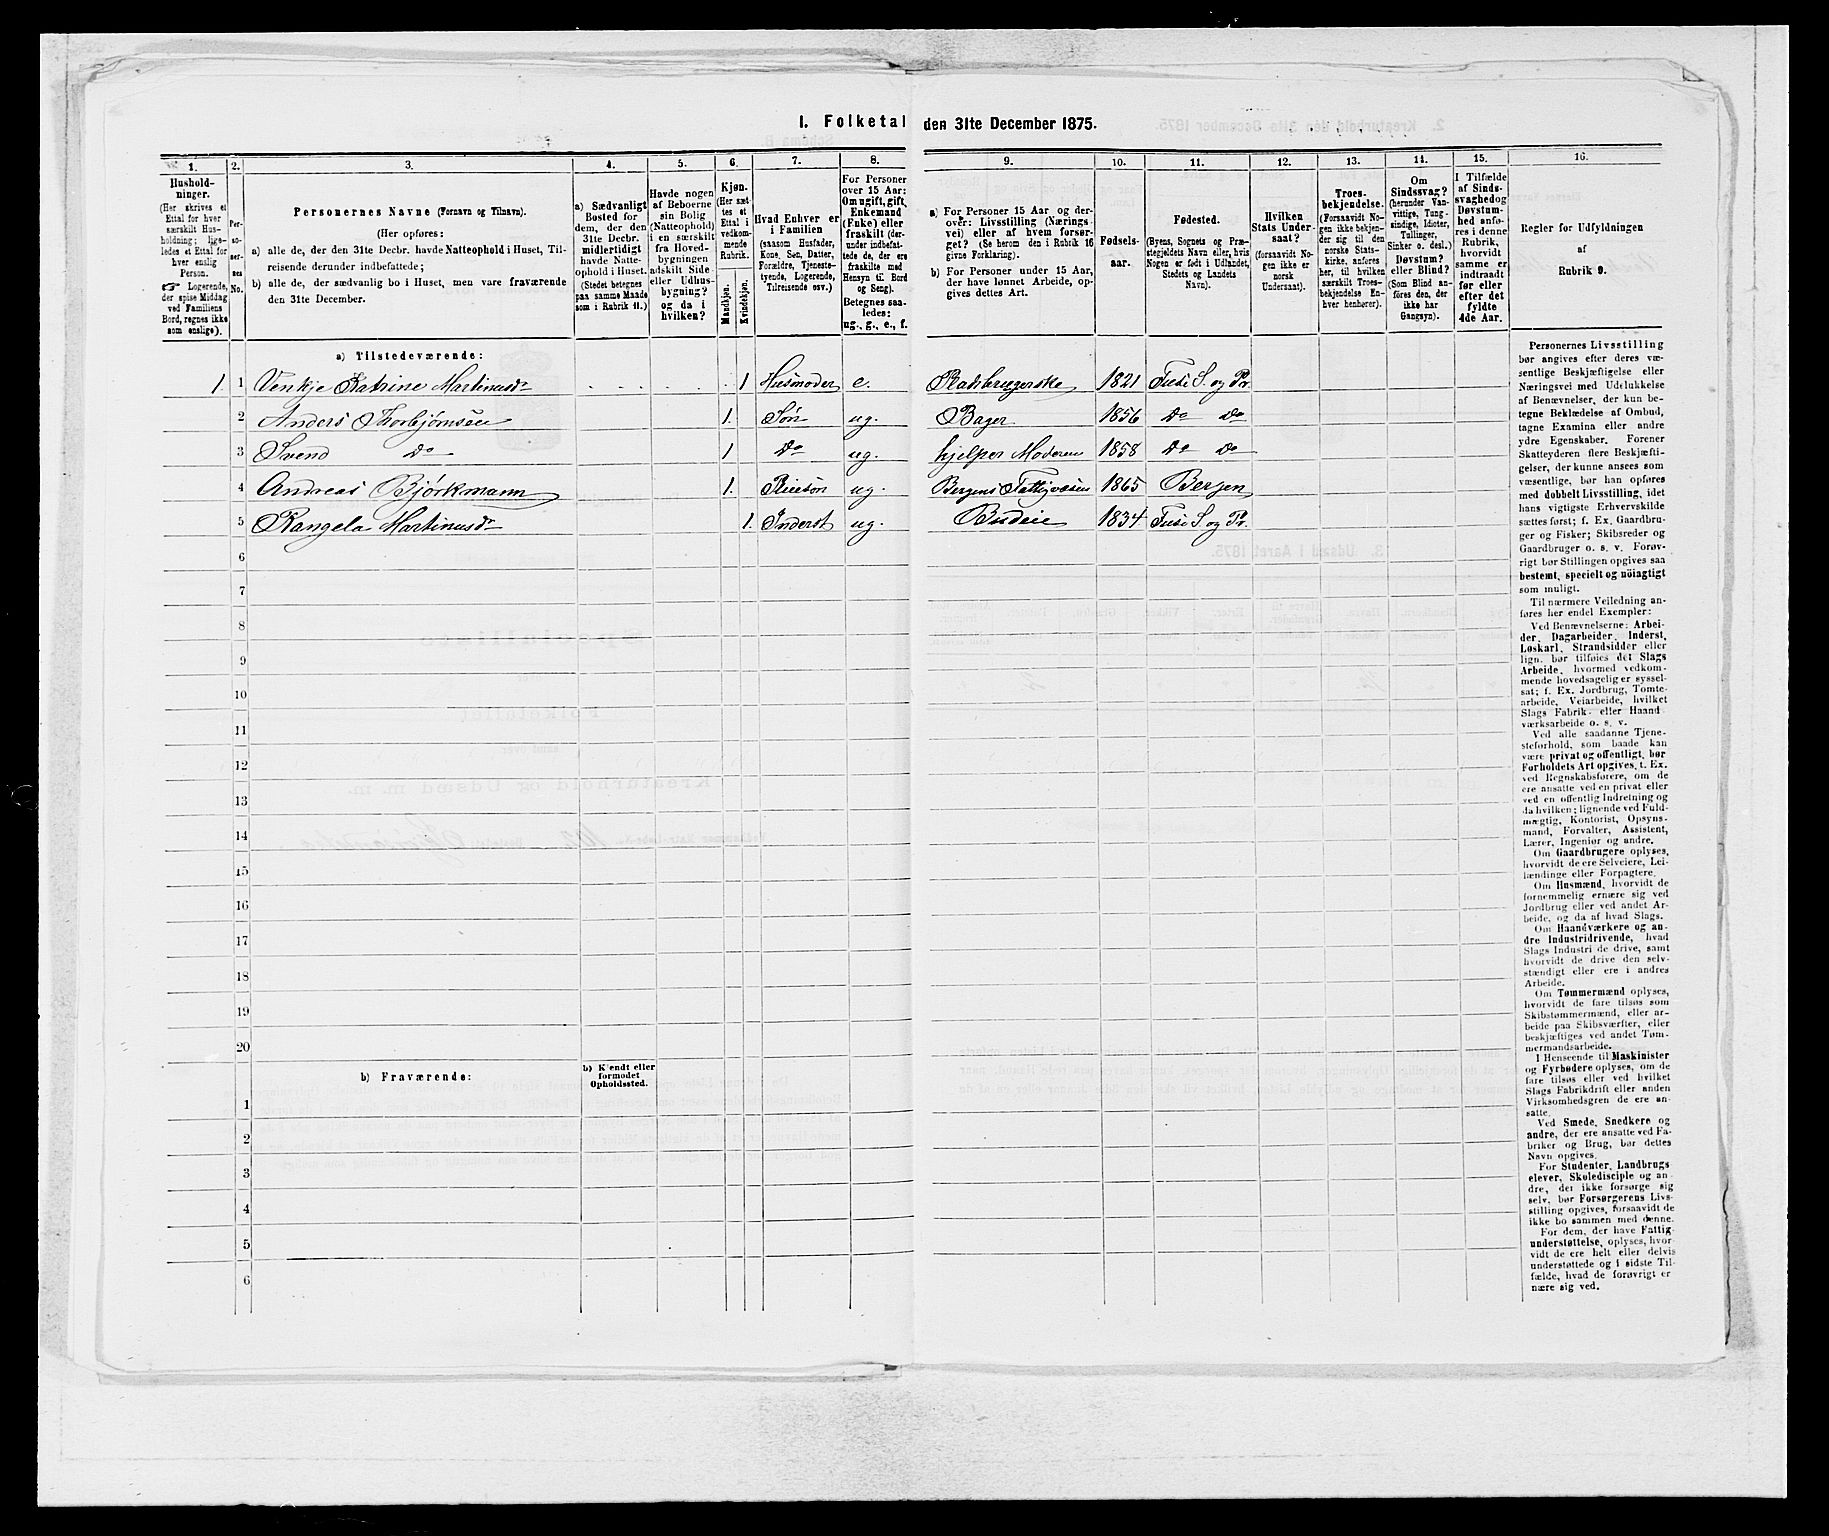 I. Folketal den 31te December 1875.
1. 2. 3. 4. 5. 6. 7. 8. 9. 10. 11. 12. 13. 14. 15. 16.
Hushold-
ninger.
(Her skrives et
Ettal for hver
særskilt Hus-
holdning; lige-
ledes et Ettal for
hver enslig
Person.
☞ Logerende,
der spise Middag
ved Familiens
Bord, regnes ikke
som enslige).
Per-
so-
ner-
nes
No.
Personernes Navne (Fornavn og Tilnavn).
(Her opføres:
a) alle de, der den 31te Decbr. havde Natteophold i Huset, Til-
reisende derunder indbefattede;
b) alle de, der sædvanlig bo i Huset, men vare fraværende
den 31te December.
a) Sædvanligt
Bosted for
dem, der den
31te Decbr.
midlertidigt
havde Natte-
ophold i Huset.
(Stedet betegnes
paa samme Maade
som i Rubrik 11.)
Havde nogen
af Beboerne
sin Bolig
(Natteophold)
i en særskilt
fra Hoved-
bygningen
adskilt Side-
eller Udhus-
bygning?
og da i
hvilken?
Kjøn.
(Her sæt-
tes et
Ettal i
vedkom-
mende
Rubrik.
Mandkjøn.
Kvindekjøn.
Hvad Enhver er
i Familien
(saasom Husfader,
Kone, Søn, Datter,
Forældre, Tjeneste-
tyende, Logerende,
Tilreisende osv.)
For Personer
over 15 Aar:
Om ugift, gift,
Enkemand
(Enke) eller
fraskilt (der-
under indbefat-
tede de, der ere
fraskilte med
Hensyn til Bord
og Seng).
Betegnes saa-
ledes:
ug., g., e., f.
a) For Personer 15 Aar og der-
over: Livsstilling (Nærings-
vei) eller af hvem forsør-
get? (Se herom den i Rubrik 16
givne Forklaring).
b) For Personer under 15 Aar,
der have lønnet Arbeide, op-
gives dettes Art.
Fødsels-
aar.
Fødested.
(Byens, Sognets og Præ-
stegjeldets Navn eller, hvis
Nogen er født i Udlandet,
Stedets og Landets
Navn).
Hvilken
Stats Under-
saat?
(forsaavidt No-
gen ikke er
norsk
Undersaat).
Troes-
bekjendelse.
(Forsaavidt No-
gen ikke bekjen-
der sig til den
norske Stats-
kirke, anføres
her, til hvilken
særskilt Troes-
bekjendelse En-
hver henhører).
Om
Sindssvag?
(herunder Van-
vittige, Tung-
sindige, Idioter,
Tullinger,
Sinker o. desl.)
Døvstum?
eller Blind?
(Som Blind an-
føres den, der
ikke har
Gangsyn).
I Tilfælde
af Sinds-
svaghedog
Døvstum-
hed anfø-
res i denne
Rubrik,
hvorvidt
samme er
indtraadt
før eller
efter det
fyldte
4de Aar.
Regler for Udfyldningen
af
Rubrik 9.
a) Tilstedeværende:
1 1 Venkje Katrine Martinusdr 1 Husmoder e. 1821 Fuse S. og Pr.
2 Anders Thorbjørnsen 1. Søn ug. Bager 1856 Do Do
3 Svend Do 1 Do ug. hjelper Moderen 1858 Do Do
4 Andreas Bjørkmann 1. Pleiesøn ug. Bergens Fattigvæsen 1865 Bergen
5 Rangela Martinusdr 1. Inderst ug. Budeie 1834 Fuse S. og Pr.
6
7
8
9
10
11
12
13
14
15
16
17
18
19
20
b) Fraværende:
b) Kjendt eller
formodet
Opholdssted.
1
2
3
4
5
6
Personernes Livsstilling
bør angives efter deres væ-
sentlige Beskjæftigelse eller
Næringsvei med Udelukkelse
af Benævnelser, der kun be-
tegne Beklædelse af Ombud,
tagne Examina eller andre
ydre Egenskaber. Forener
Skatteyderen flere Beskjæfti-
gelser, der kunne ansees som
væsentlige, bør han opføres
med dobbelt Livsstilling, idet
hans vigtigste Erhvervskilde
sættes først; f. Ex. Gaardbru-
ger og Fisker; Skibsreder og
Gaardbruger o. s. v. Forøv-
rigt bør Stillingen opgives saa
bestemt, specielt og nöiagtigt
som muligt.
Til nærmere Veiledning an-
føres her endel Exempler:
Ved Benævnelserne: Arbei-
der, Dagarbeider, Inderst,
Løskarl, Strandsidder eller
lign. bør tilføies det Slags
Arbeide, hvormed vedkom-
mende hovedsagelig er syssel-
sat; f. Ex. Jordbrug, Tomte-
arbeide, Veiarbeide, hvilket
Slags Fabrik- eller Haand-
værksarbeide o. s. v.
Ved alle saadanne Tjene-
steforhold, som baade kan
være privat og offentligt, bør
Forholdets Art opgives, t. Ex.
ved Regnskabsførere, om de
ere ansatte ved en privat eller
ved en offentlig Indretning og
da hvilken; lignende ved Fuld-
mægtig, Kontorist, Opsyns-
mand, Forvalter, Assistent,
Lærer, Ingeniør og andre.
Om Gaardbrugere oplyses,
hvorvidt de ere Selveiere, Lei-
lændinge eller Forpagtere.
Om Husmænd, hvorvidt de
fornemmelig ernære sig ved
Jordbrug eller ved andet Ar-
beide, og da af hvad Slags.
Om Haandværkere og an-
dre Industridrivende, hvad
Slags Industri de drive, samt
hvorvidt de drive den selv-
stændigt eller ere i andres
Arbeide.
Om Tømmermænd oplyses,
hvorvidt de fare tilsøs som
Skibstømmermænd, eller ar-
beide paa Skibsværfter, eller
beskjæftiges ved andet Tøm-
mermandsarbeide.
I Henseende til Maskinister
og Fyrbødere oplyses, om de
fare tilsøs eller ved hvilket
Slags Fabrikdrift eller anden
Virksomhedsgren de ere an-
satte.
Ved Smede, Snedkere og
andre, der ere ansatte ved Fa-
briker og Brug, bør dettes
Navn opgives.
For Studenter, Landbrugs-
elever, Skoledisciple og an-
dre, der ikke forsørge sig
selv, bør Forsørgerens Livs-
stilling opgives, forsaavidt de
ikke bo sammen med denne.
For dem, der have Fattig-
understøttelse, oplyses, hvor-
vidt de ere helt eller delvis
understøttede og i sidste Til-
fælde, hvad de forøvrigt er
nære sig ved.